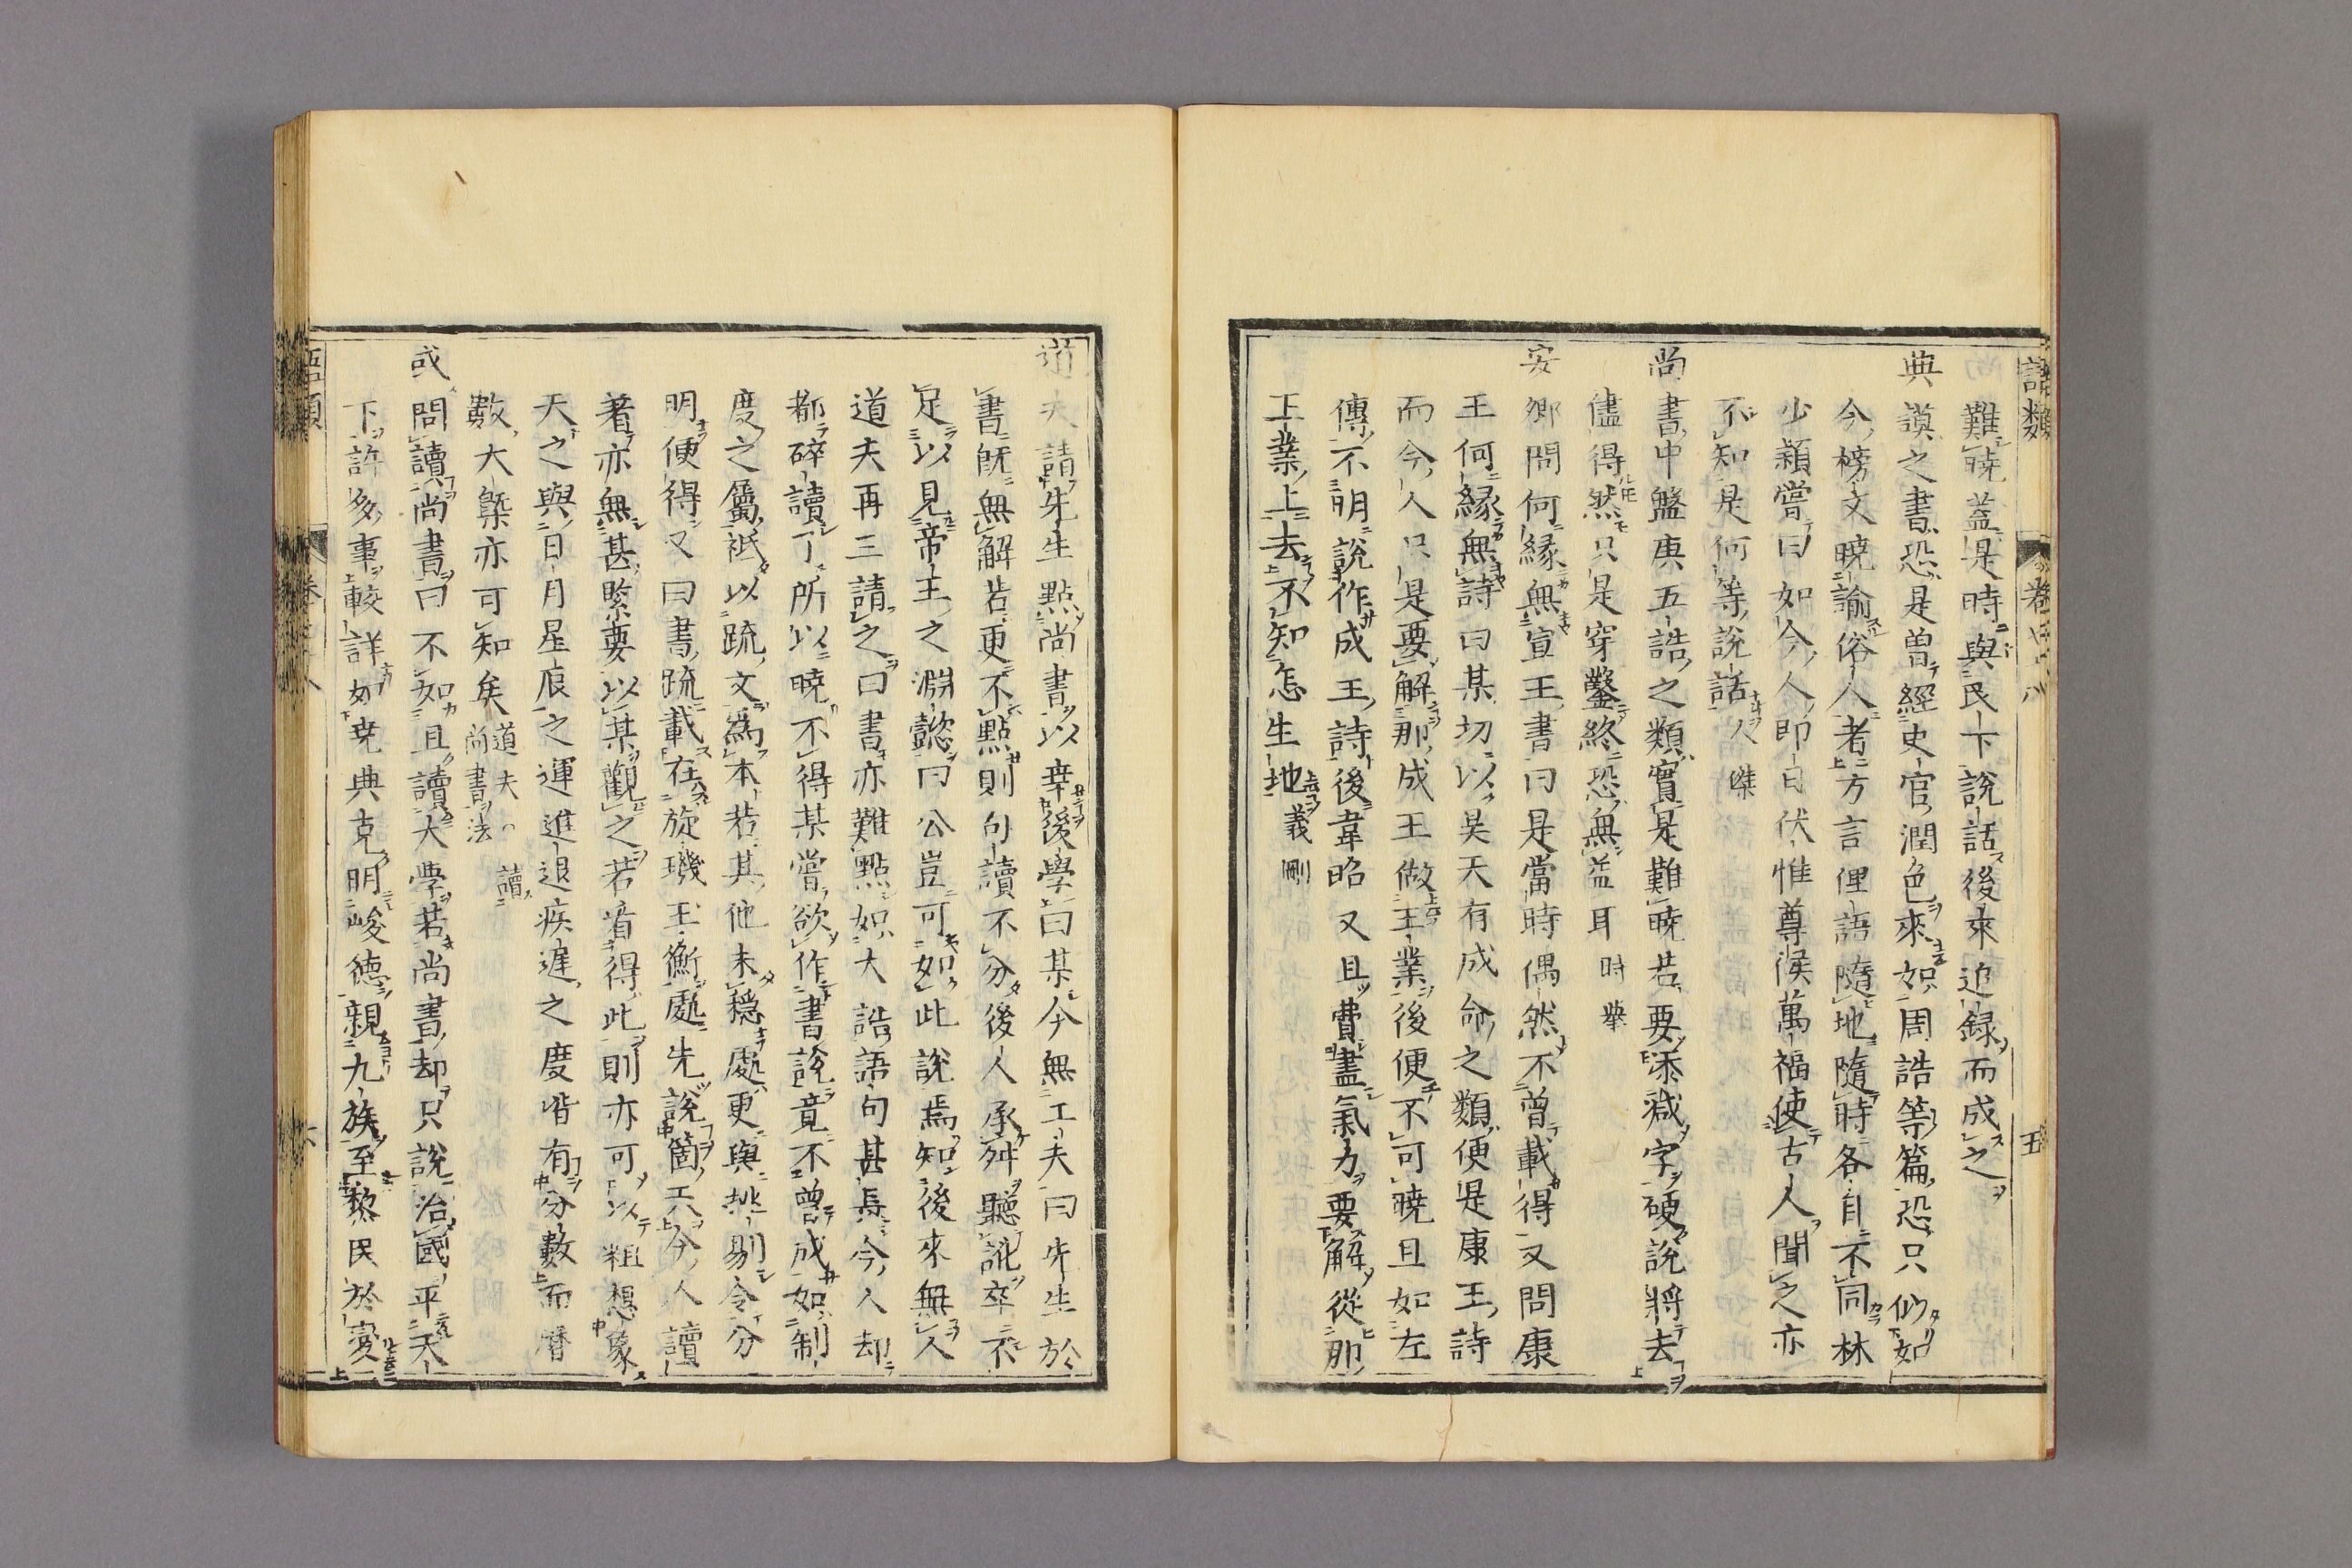 語類
卷七十八
五
難曉蓋是時與民下說話後來追録而成之
典謨之書恐是曽經史官潤色來如周誥等篇恐只似如
今榜文曉諭俗人者方言俚語隨地隨時各自不同林
少穎嘗曰如今人即日伏惟尊候萬福使古人聞之亦
不知是何等說話人傑
尚書中盤庚五誥之類實是難曉若要添減字硬說將去
儘得然只是穿鑿終恐無益耳時舉
安卿問何縁無宣王書曰是當時偶然不曾載得又問康
王何縁無詩曰某切以昊天有成命之類便是康王詩
而今人只是要解那成王做王業後便不可曉且如左
傳不明說作成王詩後韋昭又且費盡氣力要解從那
王業上去不知怎生地義剛
道夫請先生點尚書以幸後學曰某今無工夫曰先生於
書既無解若更不點則句讀不分後人承舛聽訛卒不
足以見帝王之淵懿曰公豈可如此說焉知後來無人
道夫再三請之曰書亦難點如大誥語句甚長今人却
都碎讀了所以曉不得某嘗欲作書說竟不曾成如制
度之屬祇以疏文為本若其他未穩處更與挑剔令分
明便得又曰書疏載在旋璣玉衡處先說箇天今人讀
著亦無甚緊要以某觀之若看得此則亦可以粗想象
天之與日月星辰之運進退疾遲之度皆有分數而曆
數大槩亦可知矣道夫○讀
尚書法
或問讀尚書曰不如且讀大學若尚書却只說治國平天
下許多事較詳如堯典克明峻德親九族至黎民於變
語類